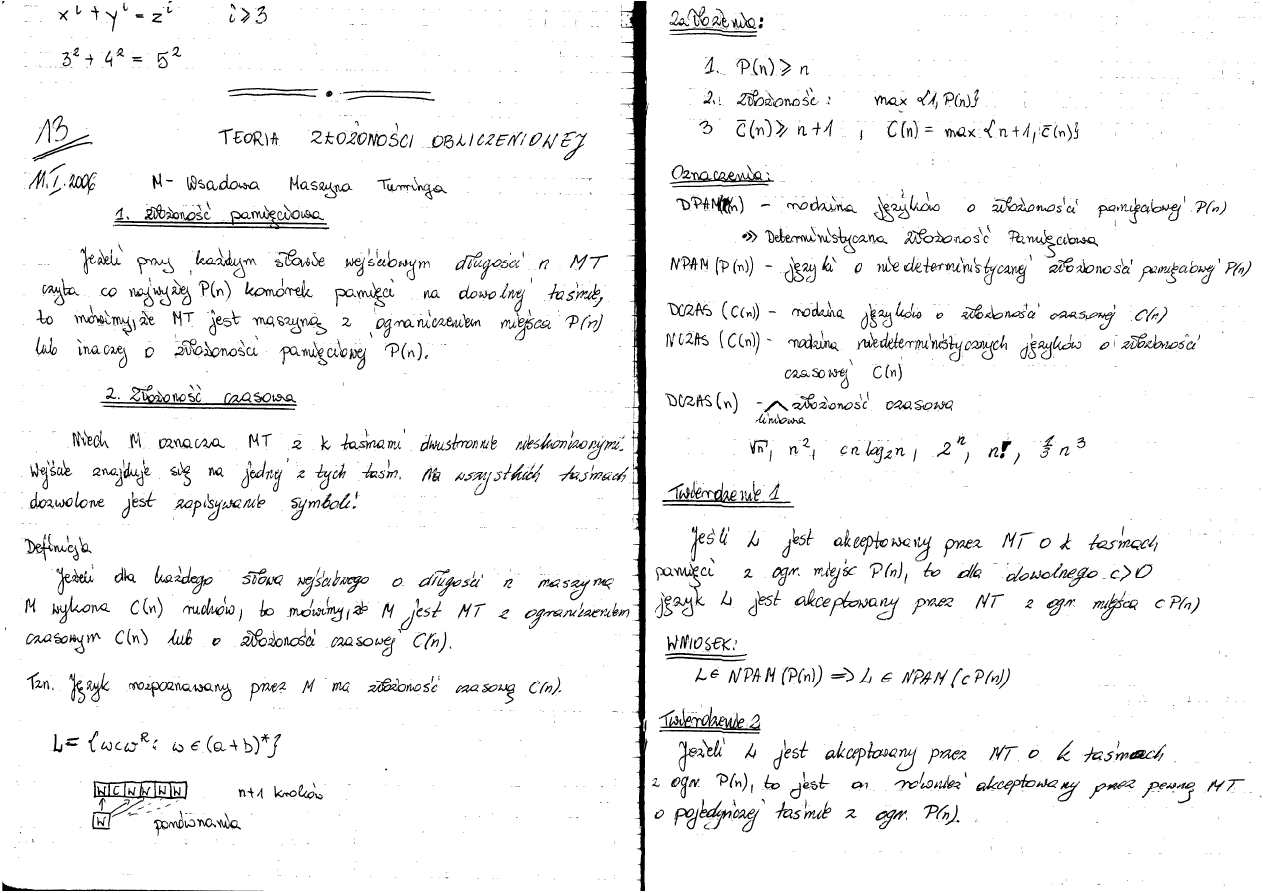 xⁱ + yⁱ = zⁱ i ⩾ 3
3² + 4² = 5²
13
TEORIA ZŁOŻONOŚCI OBLICZENIOWEJ
11.I.2006 M- Wsadowa Maszyna Turringa
1. złożoność pamięciowa
Jeżeli przy każdym słowie wejściowym długości n MT
czyta co najwyżej P(n) komórek pamięci na dowolnej taśmie,
to mówimy, że MT jest maszyną z ograniczeniem miejsca P(n)
lub inaczej o złożoności pamięciowej P(n).
2. Złożoność czasowa
Niech M oznacza MT z k taśmami dwustronnie nieskończonymi.
Wejście znajduje się na jednej z tych taśm. Na wszystkich taśmach
dozwolone jest zapisywanie symboli!
Definicja
Jeżeli dla każdego słowa wejściowego o długości n maszyna
M wykona C(n) ruchów, to mówimy, że M jest MT z ograniczeniem
czasowym C(n) lub o złożoności czasowej C(n).
Tzn. Język rozpoznawany przez M ma złożoność czasową C(n).
L= {wcwᴿ: w ∈ (a+b)*}
W C W W W W n+1 kroków
W porównania
Założenia:
1. P(n) ⩾ n
2. złożoność: max {1, P(n)}
3 C̄(n) ⩾ n+1 , C(n) = max {n+1, c̄(n)}
Oznaczenia:
DPAM(n) – rodzina języków o złożoności pamięciowej P(n)
Deterministyczna Złożoność Pamięciowa
NPAM (P(n)) – języki o niedeterministycznej złożoności pamięciowej P(n)
DCZAS (C(n)) – rodzina języków o złożoności czasowej C(n)
NCZAS (C(n)) – rodzina niedeterministycznych języków o złożoności
czasowej C(n)
DCZAS(n) – złożoność czasowa
liniowa
√n, n², cn log₂n, 2ⁿ, n!, ⅓ n³
Twierdzenie 1
Jeśli L jest akceptowany przez MT o k taśmach
pamięci z ogr. miejsc P(n), to dla dowolnego c>0
język L jest akceptowany przez MT z ogr. miejsca cP(n)
WNIOSEK:
L∈ NPAM(P(n)) => L ∈ NPAM(cP(n))
Twierdzenie 2
Jeżeli L jest akceptowany przez MT o k taśmach
z ogr. P(n), to jest on również akceptowany przez pewną MT
o pojedyńczej taśmie z ogr. P(n).